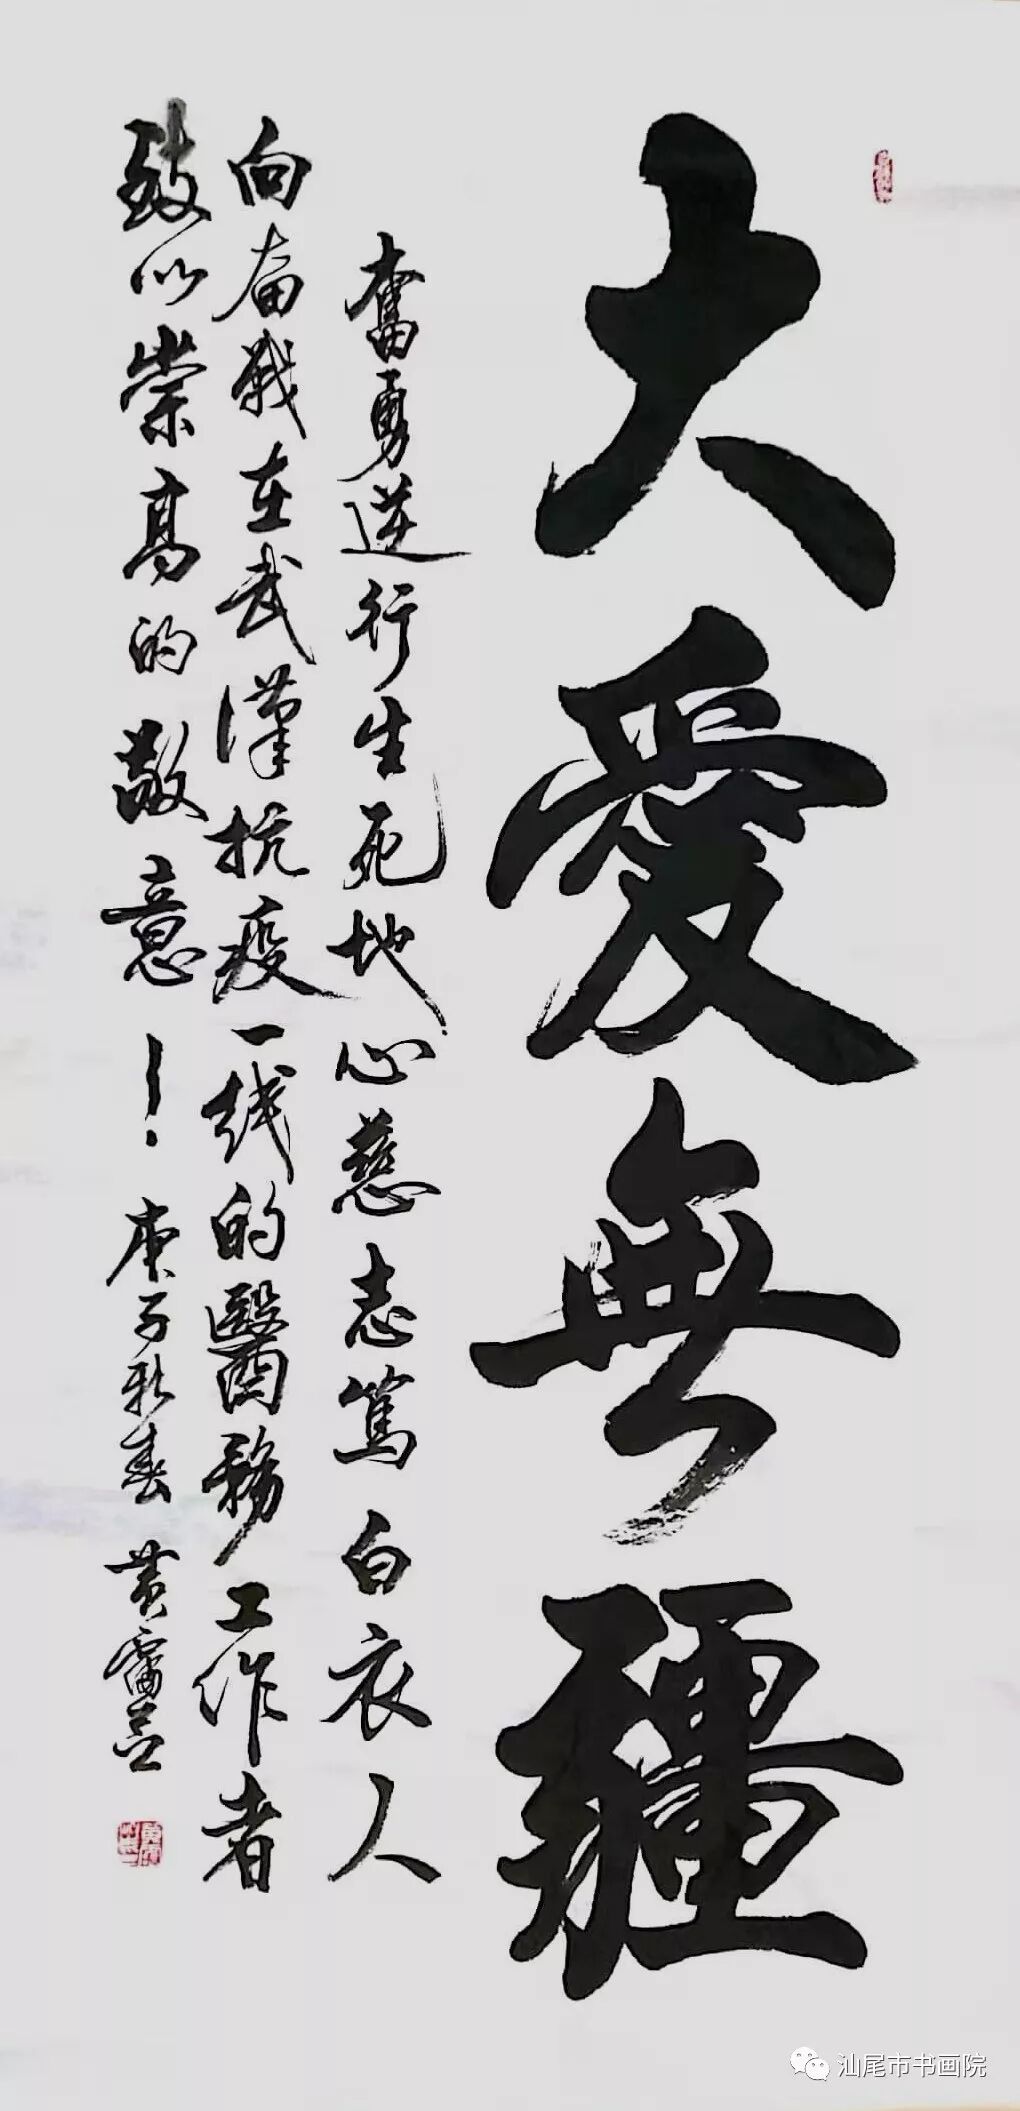 大愛無疆
奮勇逆行生死地心慈志篤白衣人
向奋戰在武漢抗疫一线的醫務工作者
致以崇高的敬意！庚子新春 黄
汕尾市书画院